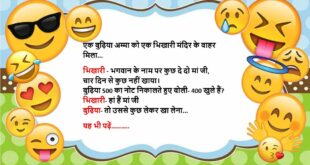 एक बुढ़िया अम्मा को एक भिखारी मंदिर के बाहर
मिला...
भिखारी- भगवान के नाम पर कुछ दे दो मां जी,
चार दिन से कुछ नहीं खाया।
बुढ़िया 500 का नोट निकालते हुए बोली- 400 खुले हैं?
भिखारी- हां हैं मां जी
बुढ़िया- तो उससे कुछ लेकर खा लेना...
यह भी पढ़ें..........